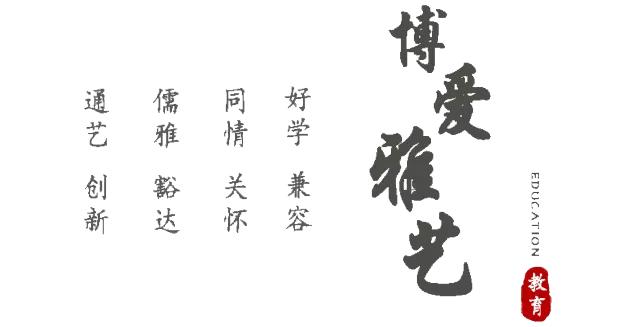 博爱雅艺
EDUCATION
教育
好学 兼容
同情 关怀
儒雅 豁达
通艺 创新